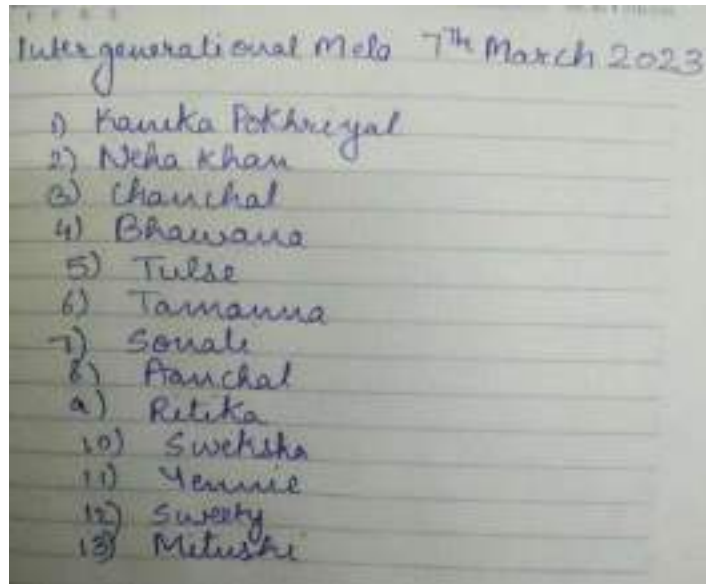 Intergenerational Mela 7th March 2023
1) Kanika Pokhriyal
2) Neha Khan
3) Chanchal
4) Bhawana
5) Tulsi
6) Tamanna
7) Sonali
8) Aanchal
9) Ritika
10) Sweksha
11) Yennie
12) Sweety
13) Mitushi